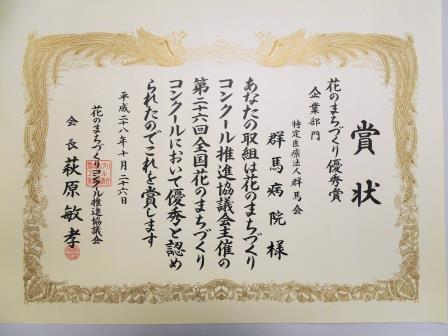 賞状
花のまちづくり優秀賞
企業部門
特定医療法人群馬会
群馬病院様
あなたの取組は花のまちづくり
コンクール推進協議会主催の
第二十六回全国花のまちづくり
コンクールにおいて優秀と認め
られたのでこれを賞します
平成二八年十月二十六日
花のまちづくりコンクール推進協議会
会長 萩原敏孝